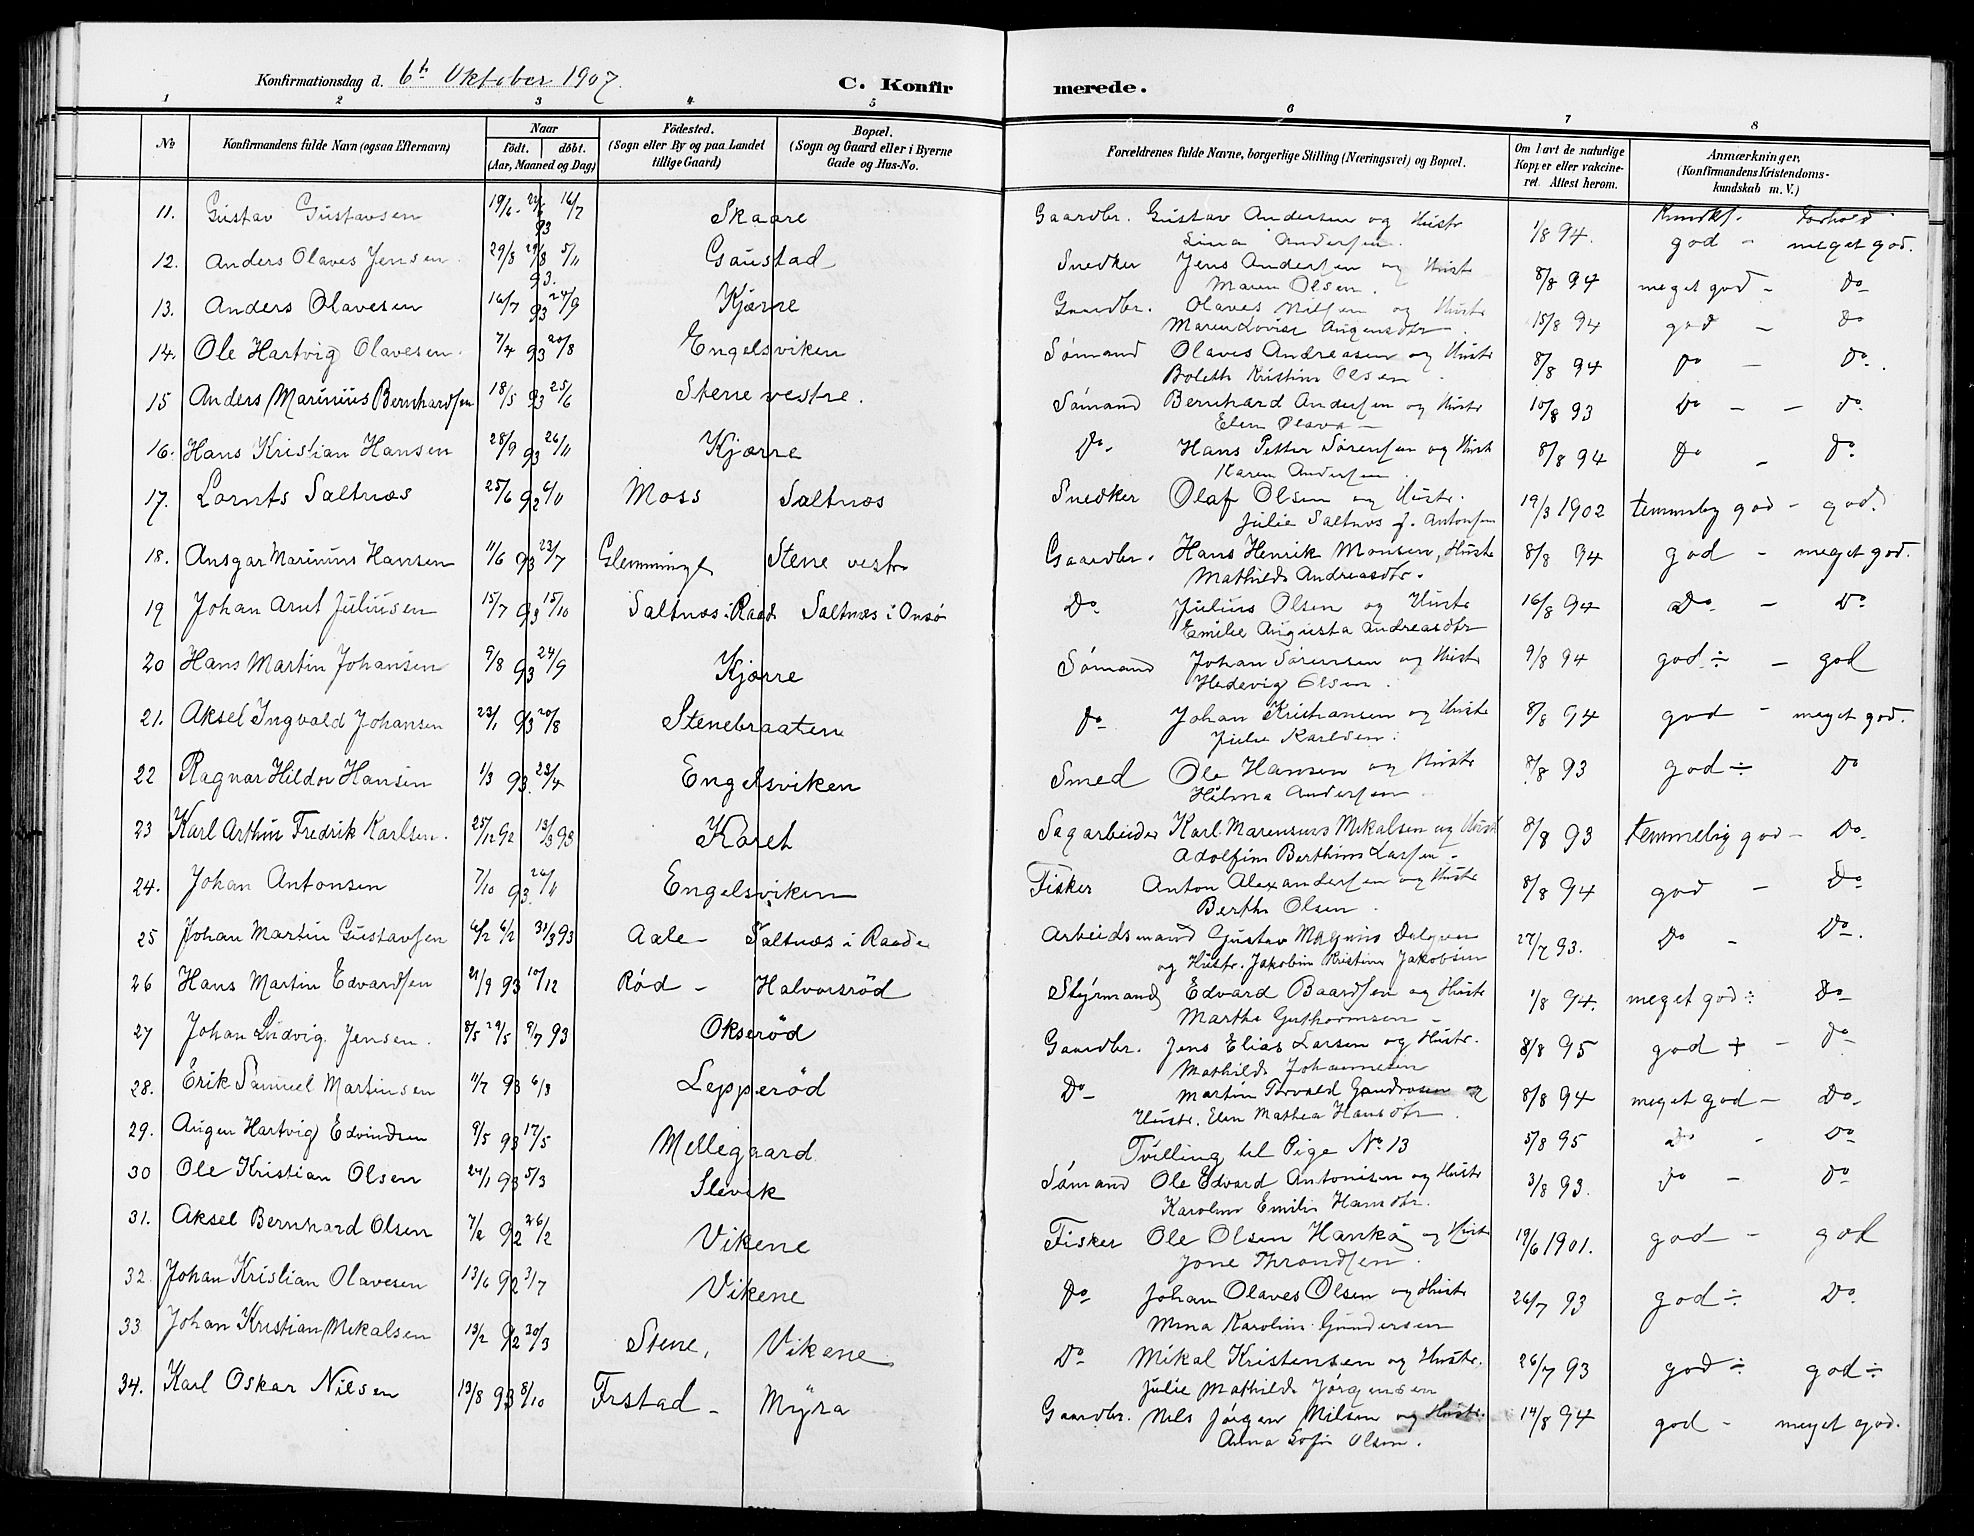 Konfirmationsdag d. 6te Oktober 1907.
C. Konfirmerede.
1 2 3 4 5 6 7 8
No Konfirmandens fulde Navn (ogsaa Efternavn) Naar født. døbt. (Aar, Maaned og Dag) Födested. (Sogn eller By og paa Landet tillige Gaard) Bopæl. (Sogn og Gaard eller i Byerne Gade og Hus-No. Forældrenes fulde Navne, borgerlige Stilling (Næringsvei) og Bopæl. Om havt de naturlige Kopper eller vakcineret. Attest herom. Anmærkninger, (Konfirmandens Kristendomskundskab m. V.)
Kundsk. Forhold
11. Gustav Gustavsen 19/6 - 93 16/7 Skaare Gaardbr. Gustav Andersen og Hustr 1/8 94. god - meget god.
Lina Andersen.
12. Anders Olaves Jensen 29/8 29/8 93. 5/11 Gaustad Snedker Jens Andersen og Hustr 8/8 94 meget god - Do
Maren Olsen.
13. Anders Olavesen 16/7 93 24/9 Kjærre Gaardbr. Olaves Nilsen og Hustr 15/8 94 god - Do
Maren Lovise Augensdtr.
14. Ole Hartvig Olavesen. 7/4 93 20/8 Engelsviken Sømand Olaves Andreasen og Hustr 8/8 94 Do - Do.
Boleth Kristine Olsen
15 Anders Marinius Bernhardsen 18/5 93 25/6 Stene vestre. Sømand Bernhard Andersen og Hustr 10/8 93 Do - - Do
Elen Olava -
16. Hans Kristian Hansen 28/9 93 26/11 Kjærre Do - Hans Petter Sørensen og Hustr 8/8 94 Do - Do
Karen Andersen
17. Lornts Saltnæs 25/6 92 6/11 Moss Saltnæs Snedker Olaf Olsen og Hustr. 19/3 1902 temmelig god - god.
Julie Saltnæs f. Antonsen
18. Ansgar Marinius Hansen 11/6 93 23/7 Glemminge Stene vestr Gaardbr. Hans Henrik Monsen, Hustr 8/8 94 god - meget god.
Mathilde Andreasdtr.
19 Johan Arnt Juliusen 15/7 93 15/10 Saltnæs i Raade Saltnæs i Onsø Do - Julius Olsen og Hustr 16/8 94 Do - Do
Emilie Augusta Andreasdtr
20 Hans Martin Johansen 9/8 93 24/9 Kjærre Sømand Johan Sørensen og Hustr 9/8 94 god ÷ - god
Hedevig Olsen.
21. Aksel Ingvald Johansen 23/1 93 20/8 Stenebraaten Do Johan Kristiansen og Hustr 8/8 94 god - meget god.
Julie Karlsen.
22 Ragnar Hildor Hansen 1/3 93. 23/4 Engelsviken Smed Ole Hansen og Hustr 8/8 93 god ÷ Do
Hilma Andersen
23 Karl Arthur Fredrik Karlsen. 25/12 92 13/3 93 Karet Sagarbeider Karl Marensius Mikalsen og Hustr 8/8 93 temmelig god - Do.
Adolfine Berthine Larsen -
24. Johan Antonsen 7/10 93. 26/11 Engelsviken Fisker Anton Alexandersen og Hustr 8/8 94 god - Do
Berthe Olsen.
25 Johan Martin Gustavsen 6/2 6/2 31/3 93 Aale - Saltnæs i Raade Arbeidsmand Gustav Magnus Dalgren 27/7 93. Do - Do.
og Hustr. Jakobine Kristine Jakobsen
26 Hans Martin Edvardsen 21/9 93 10/12 Rød - Halvorsröd Styrmand Edvard Baardsen og Hustr 1/8 94. meget god ÷ Do
Marthe Guthormsen -
27 Johan Ludvig Jensen. 8/5 29/5 9/7 93 Okseröd Gaardbr. Jens Elias Larsen og Hustr. 8/8 95 god + - Do
Mathilde Johannesen
28. Erik Samuel Martinsen 11/7 93 6/8 Lepperöd Do - Martin Torvald Gundrosen og 8/8 94 meget god - Do.
Hustr. Elen Mathea Hansdtr.
29. Augen Hartvig Edvindsen 9/5 93 17/5 Mellegaard Tvilling til Pige No 13 5/8 95 Do - Do
30 Ole Kristian Olsen 24/1 93 5/3 Slevik Sømand Ole Edvard Antonisen og Hustr 3/8 93. Do - Do
Karoline Emilie Hansdtr
31. Aksel Bernhard Olsen 7/2 92 26/2 Vikene Fisker Ole Olsen Hankø og Hustr 19/6 1901. god - god
Jone Throndsen.
32 Johan Kristian Olavesen 13/6 92 3/7 Vikene Do Johan Olaves Olsen og Hustr 26/7 93 god ÷ Do
Mina Karoline Gundersen
33 Johan Kristian Mikalsen 13/2 92 20/3 Stene, Vikene Do Mikal Kristensen og Hustr. 26/7 93 god ÷ god ÷
Julie Mathilde Jørgensen
34. Karl Oskar Nilsen 13/8 93 8/10 Frstad - Myra Gaardbr. Nils Jørgen Nilsen og Hustr. 14/8 94 god - meget god.
Anna Sofie Olsen.